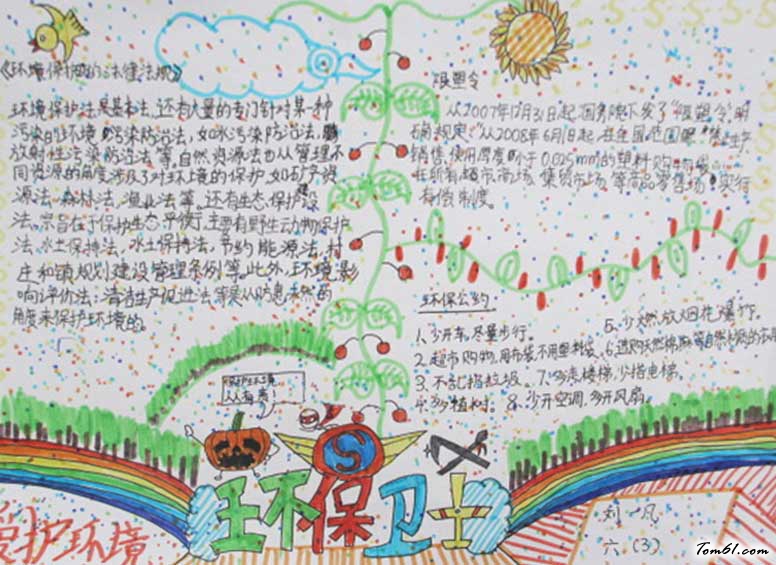 《环境保护的法律法规》
环境保护法是基本法,还有大量的专门针对某一种
污染的环境污染防治法,如水污染防治法,
放射性污染防治法等。自然资源法也从管理不
同资源的角度涉及了对环境的保护,如矿产资
源法、森林法、渔业法等。还有生态保护
法。宗旨在于保护生态平衡,主要有野生动物保护
法、水土保持法,水土保持法,节约能源法,村
庄和镇规划建设管理条例等,此外,环境影
响评价法;清洁生产促进法等是从
角度来保护环境的。
限塑令
从2007年12月31日起,国务院下发了“限塑令”,明
确规定:“从2008年6月1日起,在全国范围
销售、使用厚度小于0.025mm的塑料购物袋。
在所有超市、商场、集贸市场等商品零售场所实行
有偿制度。
环保公约
1、少开车,尽量步行。
2、超市购物,用布袋,不用塑料袋。
3、不乱扔垃圾。
4、多植树。
5、少燃放烟花爆竹。
6、选购天然棉麻等自然
7、多走楼梯,少搭电梯。
8、少开空调,多开风扇。
保护环境
人人有责!
S
王不保卫士
爱护环境
刘风
六(3)
Tom61.com